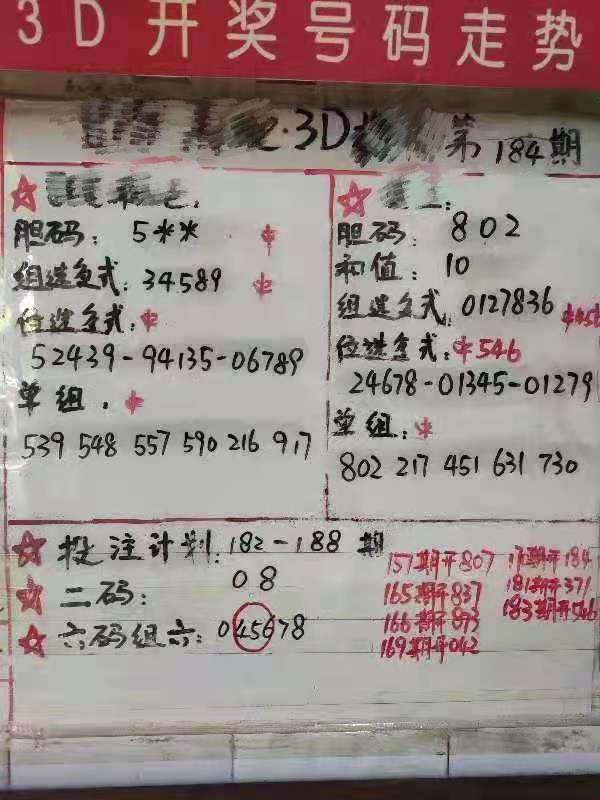 3D开奖号码走势
3D
第184期
胆码: 5** 中
组选复式: 34589 中
位选复式: 中
52439-94135-06789
单组: 中
539 548 557 590 216 917
胆码: 802
和值: 10
组选复式: 0127836
位选复式: 中546
24678-01345-01279
单组: 中
802 217 451 631 730
投注计划: 182-188期
二码: 08
六码组六: 045678
157期开807
165期开837
166期开873
169期开042
181期开371
183期开546